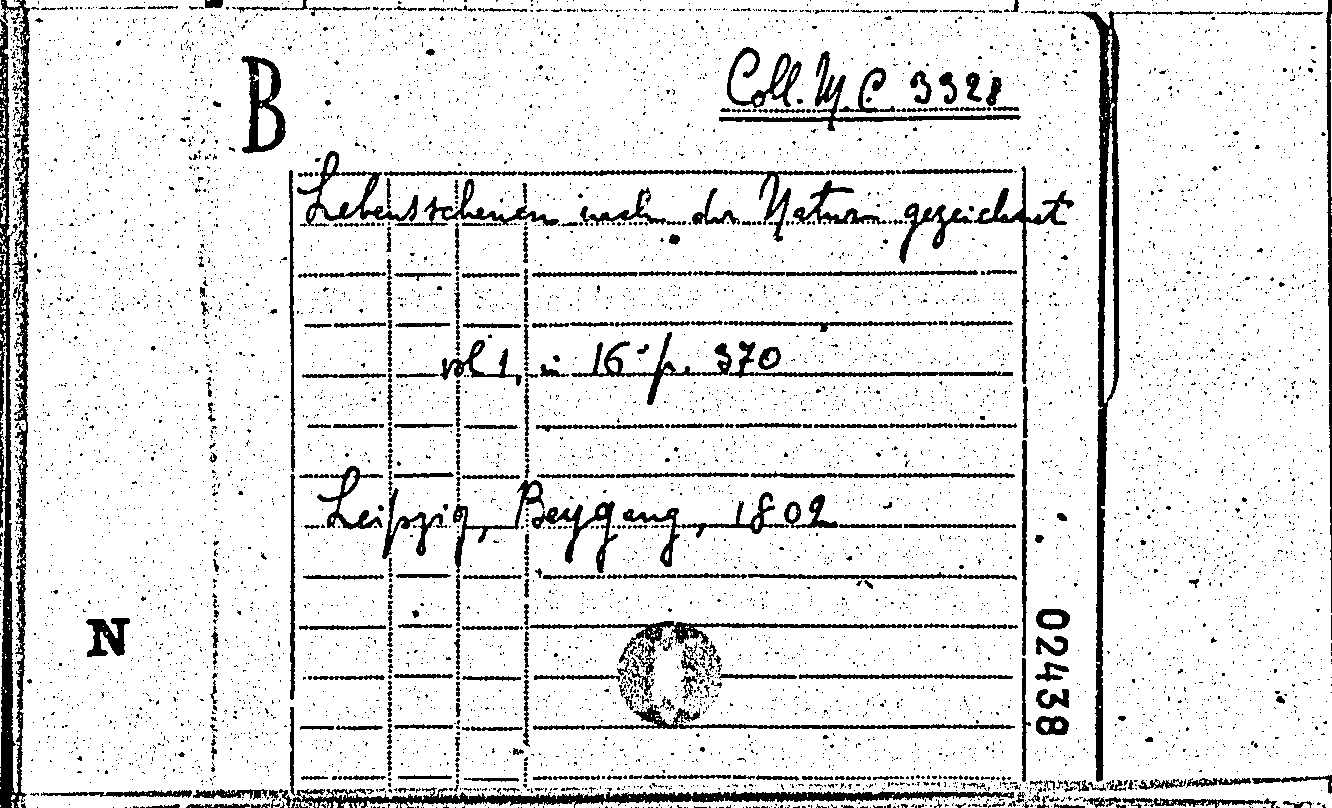 B
Coll. M. C. 3328
Lebensschenen nach der Natur gezeichnet
vol 1, in 16° p. 370
Leipzig, Beygang, 1802
N
02438